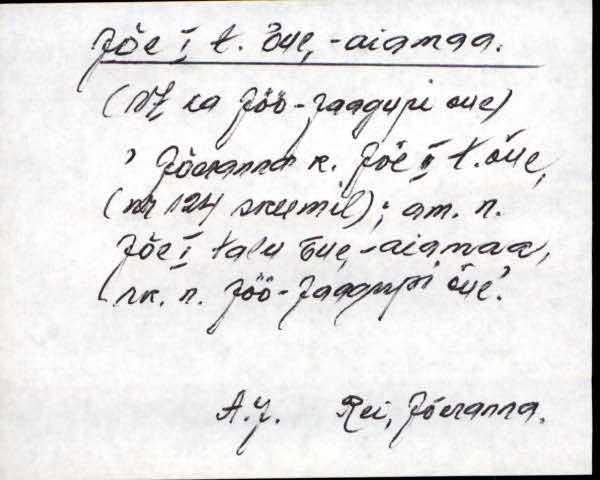 Jõe I t. õue, -aiamaa.
(Vt ka Jöö-Jaagupi õue)
, Jõeranna k. Jõe II t. õue,
(nr 124 skeemil); am. n.
Jõe I talu õue, -aiamaa,
rk. n. Jöö-Jaagupi õue'.
A.J. Rei, Jõeranna.